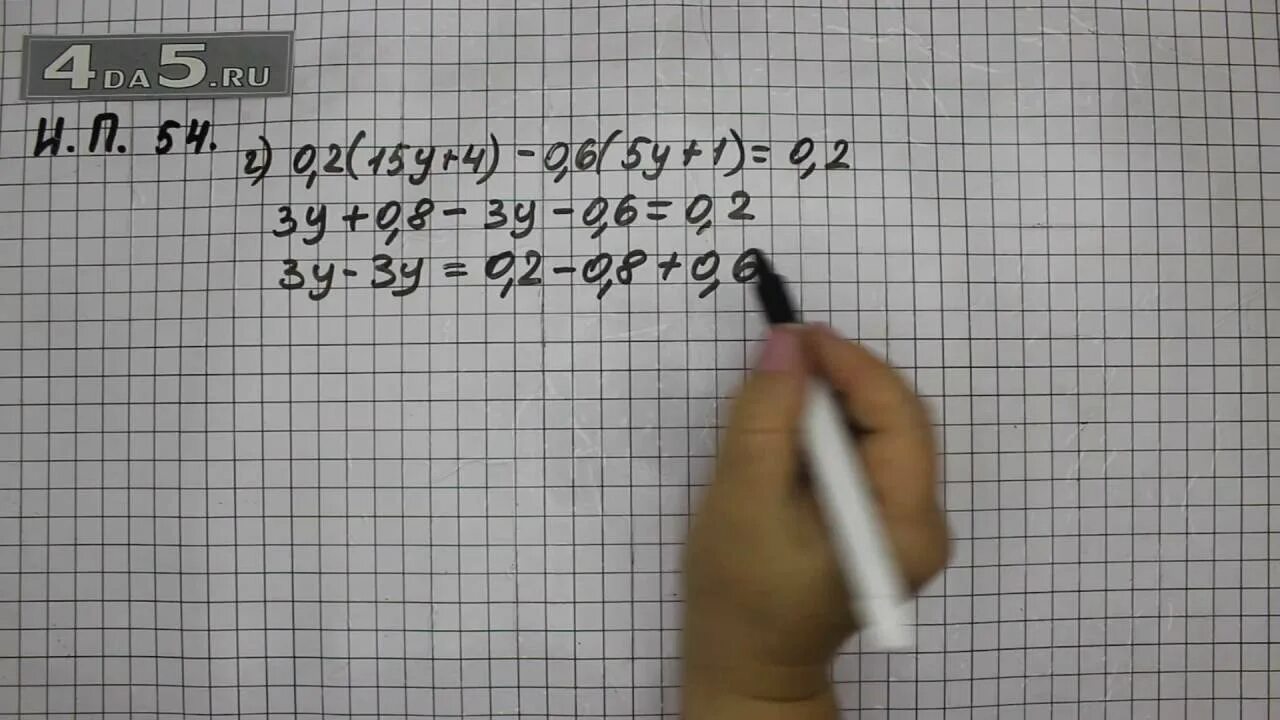 4DA5.RU
Н.П. 54.
г) 0,2(15y+4) - 0,6(5y+1) = 0,2
3y + 0,8 - 3y - 0,6 = 0,2
3y - 3y = 0,2 - 0,8 + 0,6